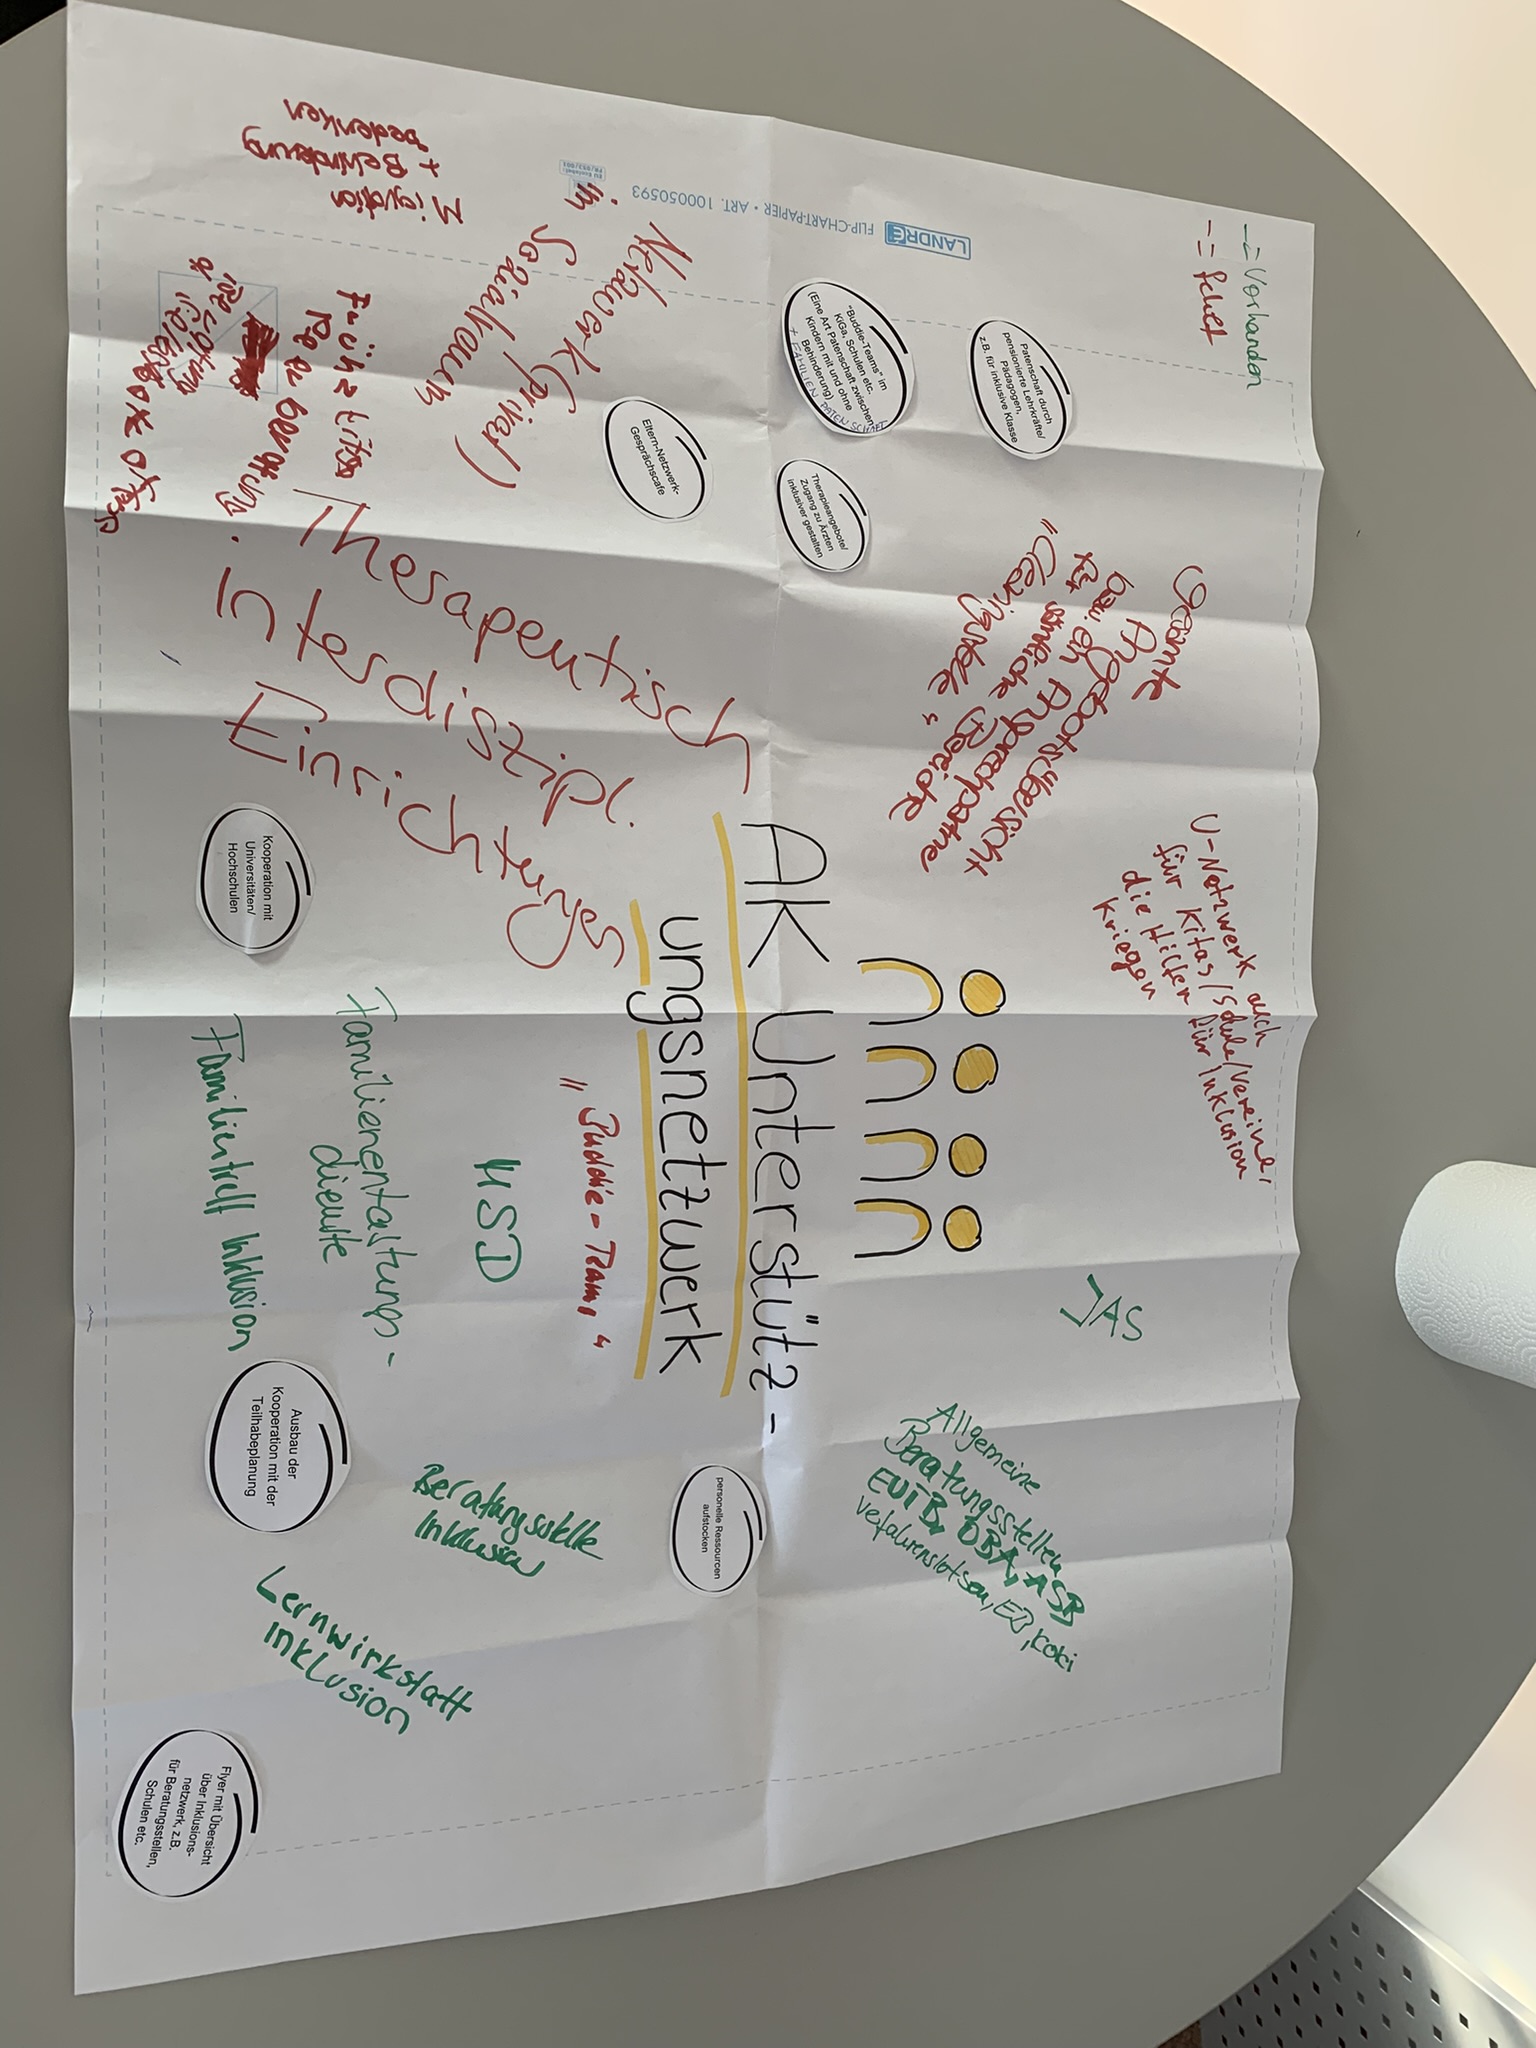 - = Vorhanden
- = fehlt
Patenschaft durch
pensionierte Lehrkräfte/
Pädagogen,
z.B. für inklusive Klasse
"Buddie-Teams" im
KiGa, Schulen etc.
(Eine Art Patenschaft zwischen
Kindern mit und ohne
Behinderung)
+ FAMILIEN PATENSCHAFT
Therapieangebote/
Zugang zu Ärzten
inklusiver gestalten
Eltern-Netzwerk-
Gesprächscafe
LANDRÉ
FLIP-CHART-PAPIER • ART. 100050593
Migration
+ Behinderung
bedenken
Netzwerk (privat)
im
Sozialraum
gesamte
Angebotsübersicht
bzw. ein Ansprechpartner
für sämtliche Bereiche
"Clearingstelle"
U-Netzwerk auch
für Kitas/Schule/Vereine,
die Hilfen für Inklusion
kriegen
Therapeutisch
interdiszipl.
Einrichtung
AK Unterstütz-
ungsnetzwerk
JAS
"Buddie-Team"
MSD
Familienentlastungs-
dienste
Familientreff Inklusion
Kooperation mit
Universitäten/
Hochschulen
Allgemeine
Beratungsstellen
EUTB, OBA, ASB
Verfahrenslotsen, EB, Koki
personelle Ressourcen
aufstocken
Beratungsstelle
Inklusion
Ausbau der
Kooperation mit der
Teilhabeplanung
Lernwirkstatt
inklusion
Flyer mit Übersicht
über Inklusions-
netzwerk, z.B.
für Beratungsstellen,
Schulen etc.